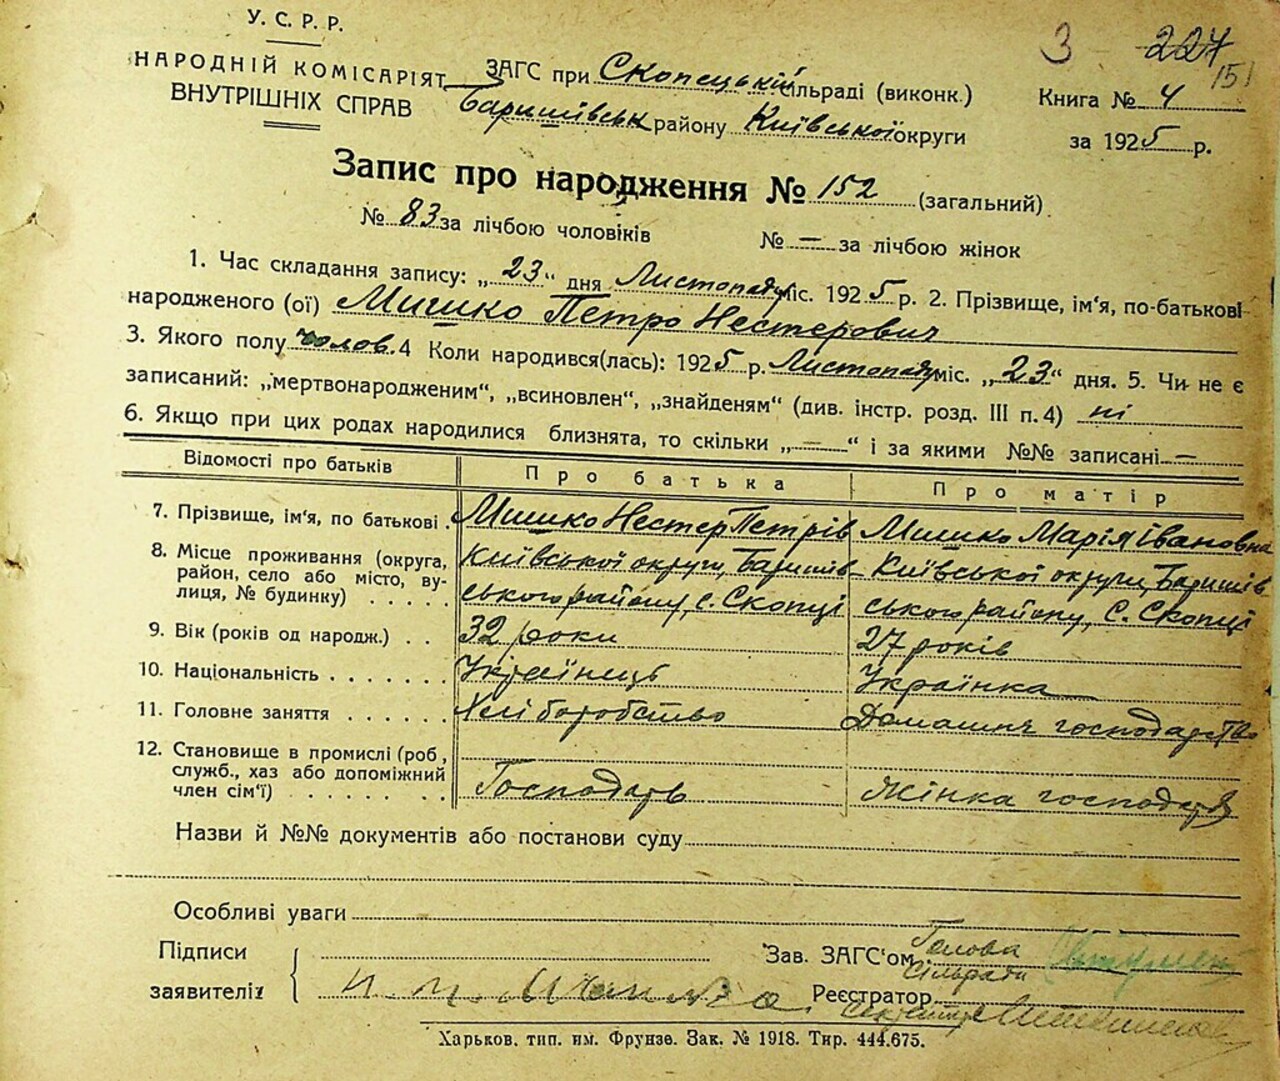 У. С. Р. Р.
НАРОДНІЙ КОМІСАРІЯТ
ВНУТРІШНІХ СПРАВ
ЗАГС при Скопецькій сільраді (виконк.)
Баришівськ району Київської округи
3 227
151
Книга № 4
за 1925 р.
Запис про народження № 152 (загальний)
№ 83 за лічбою чоловіків № — за лічбою жінок
1. Час складання запису: „23“ дня Листопаду міс. 1925 р. 2. Прізвище, ім'я, по-батькові
народженого (ої) Мишко Петро Нестерович
3. Якого полу чолов. 4 Коли народився(лась): 1925 р. Листопаду міс. „23“ дня. 5. Чи не є
записаний: „мертвонародженим“, „всиновлен“, „знайденям“ (див. інстр. розд. III п. 4) ні
6. Якщо при цих родах народилися близнята, то скільки „—“ і за якими №№ записані —
Відомості про батьків Про батька Про матір
7. Прізвище, ім'я, по батькові . Мишко Нестер Петрів Мишко Марія Івановна
8. Місце проживання (округа, Київської округи, Баришів Київської округи, Баришів
район, село або місто, ву-
лиця, № будинку) . . . . . ського району, с. Скопці ського району, С. Скопці
9. Вік (років од народж.) . . 32 роки 27 років
10. Національність . . . . . . . Українець Українка
11. Головне заняття . . . . . . Хліборобство Домашнє господарство
12. Становище в промислі (роб,
служб., хаз або допоміжний
член сім'ї) . . . . . . . . Господарь Жінка господаря
Назви й №№ документів або постанови суду
Особливі уваги
Підписи
заявителів
Зав. ЗАГС'ом Голова
Сільради
Реєстратор
Секретар
Харьков. тип. им. Фрунзе. Зак. № 1918. Тир. 444.675.